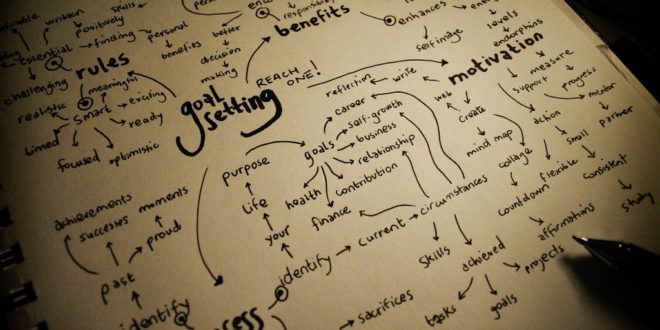 written
skills
positively
essential
finding
personal
benefits
better
decision
making
responsibility
benefits
enhances
self image
levels
endorphins
rules
challenging
realistic
meaningful
smart
exciting
ready
timed
focused
optimistic
goal
setting
REACH
ONE!
motivation
reflection
write
web
create
mind map
collage
measure
support
progress
monitor
action
small
partner
flexible
consistent
countdown
affirmations
study
projects
purpose
life
your
identify
goals
career
self-growth
business
relationship
contribution
health
finance
current
circumstances
skills
achieved
tasks
goals
sacrifices
achievements
successes
moments
proud
past
identify